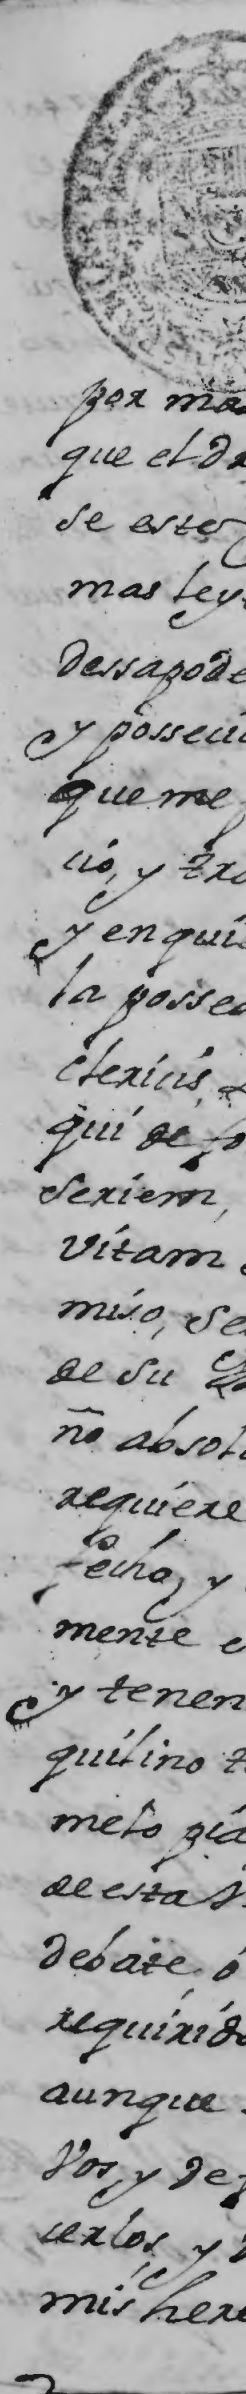 por mas
que el dr
se este
mas leye
dessapode
y posseci
que me p
cio, y tra
y en qui
la possec
clericis,
qui de fo
Seriem,
Vitam
miso, se
de su
nõ absol
requiere
fecho, y
mente e
y tenen
quilino t
meto pa
de esta
debate ó
requirido
aunque
Vos, y de
cerlos, y
mis here